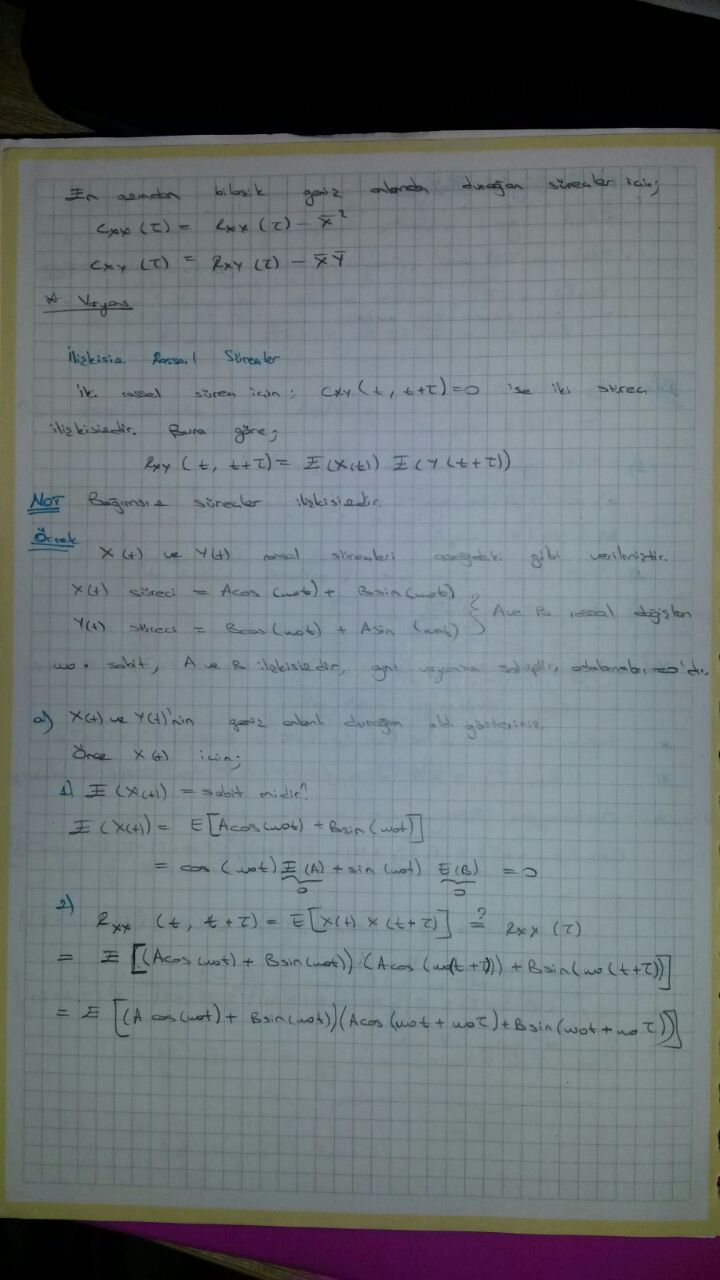 En azından bileşik geniş anlamda durağan süreçler için;
Cxx (τ) = Rxx (τ) - X̄²
Cxy (τ) = Rxy (τ) - X̄Ȳ
* Varyans
İlişkisiz Rassal Süreçler
İki rassal süreç için; Cxy (t, t+τ) = 0 ise iki süreç
ilişkisizdir. Buna göre;
Rxy (t, t+τ) = E(X(t)) E(Y(t+τ))
NOT Bağımsız süreçler ilişkisizdir.
Örnek
X(t) ve Y(t) rassal süreçleri aşağıdaki gibi verilmiştir.
X(t) süreci = Acos(wot) + Bsin(wot)
Y(t) süreci = Bcos(wot) + Asin(wot) } A ve B rassal değişken
wo: sabit, A ve B ilişkisizdir, aynı varyansa sahiptir, ortalamaları =0'dır.
a) X(t) ve Y(t)'nin geniş anlamlı durağan old. gösteriniz.
Önce X(t) için;
1) E(X(t)) = sabit midir?
E(X(t)) = E[Acos(wot) + Bsin(wot)]
= cos(wot) E(A) + sin(wot) E(B) = 0
0 0
2)
Rxx (t, t+τ) = E[X(t) X(t+τ)] ?= Rxx (τ)
= E[(Acos(wot) + Bsin(wot)).(Acos(wo(t+τ)) + Bsin(wo(t+τ))]
= E[(A cos(wot) + Bsin(wot))(Acos(wot + woτ) + Bsin(wot + woτ))]